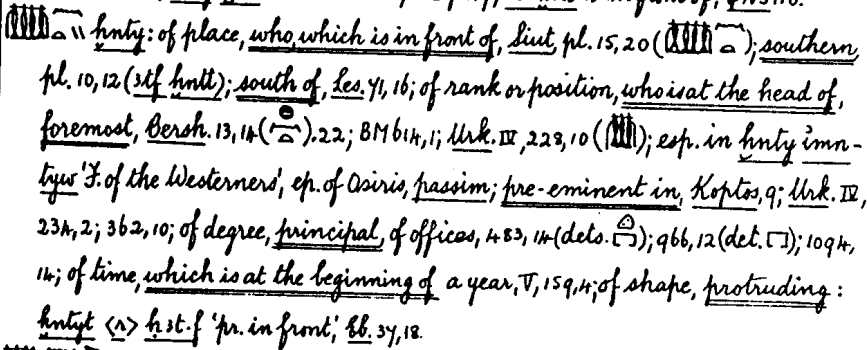 ḫnty: of place, who, which is in front of, Siut, pl. 15, 20 ( ); southern,
pl. 10, 12 (ꜣtf ḫntt); south of, Les. 71, 16; of rank or position, who is at the head of,
foremost, Bersh. 13, 14 ( ). 22; BM 614, 1; Urk. IV, 228, 10 ( ); esp. in ḫnty imn-
tyw 'F. of the Westerners', ep. of Osiris, passim; pre-eminent in, Koptos, 9; Urk. IV,
234, 2; 362, 10; of degree, principal, of offices, 483, 14 (dets. ); 966, 12 (det. ); 1094,
14; of time, which is at the beginning of a year, V, 159, 4; of shape, protruding:
ḫntyt <r> ḥꜣt·f 'pr. in front', Eb. 37, 18.